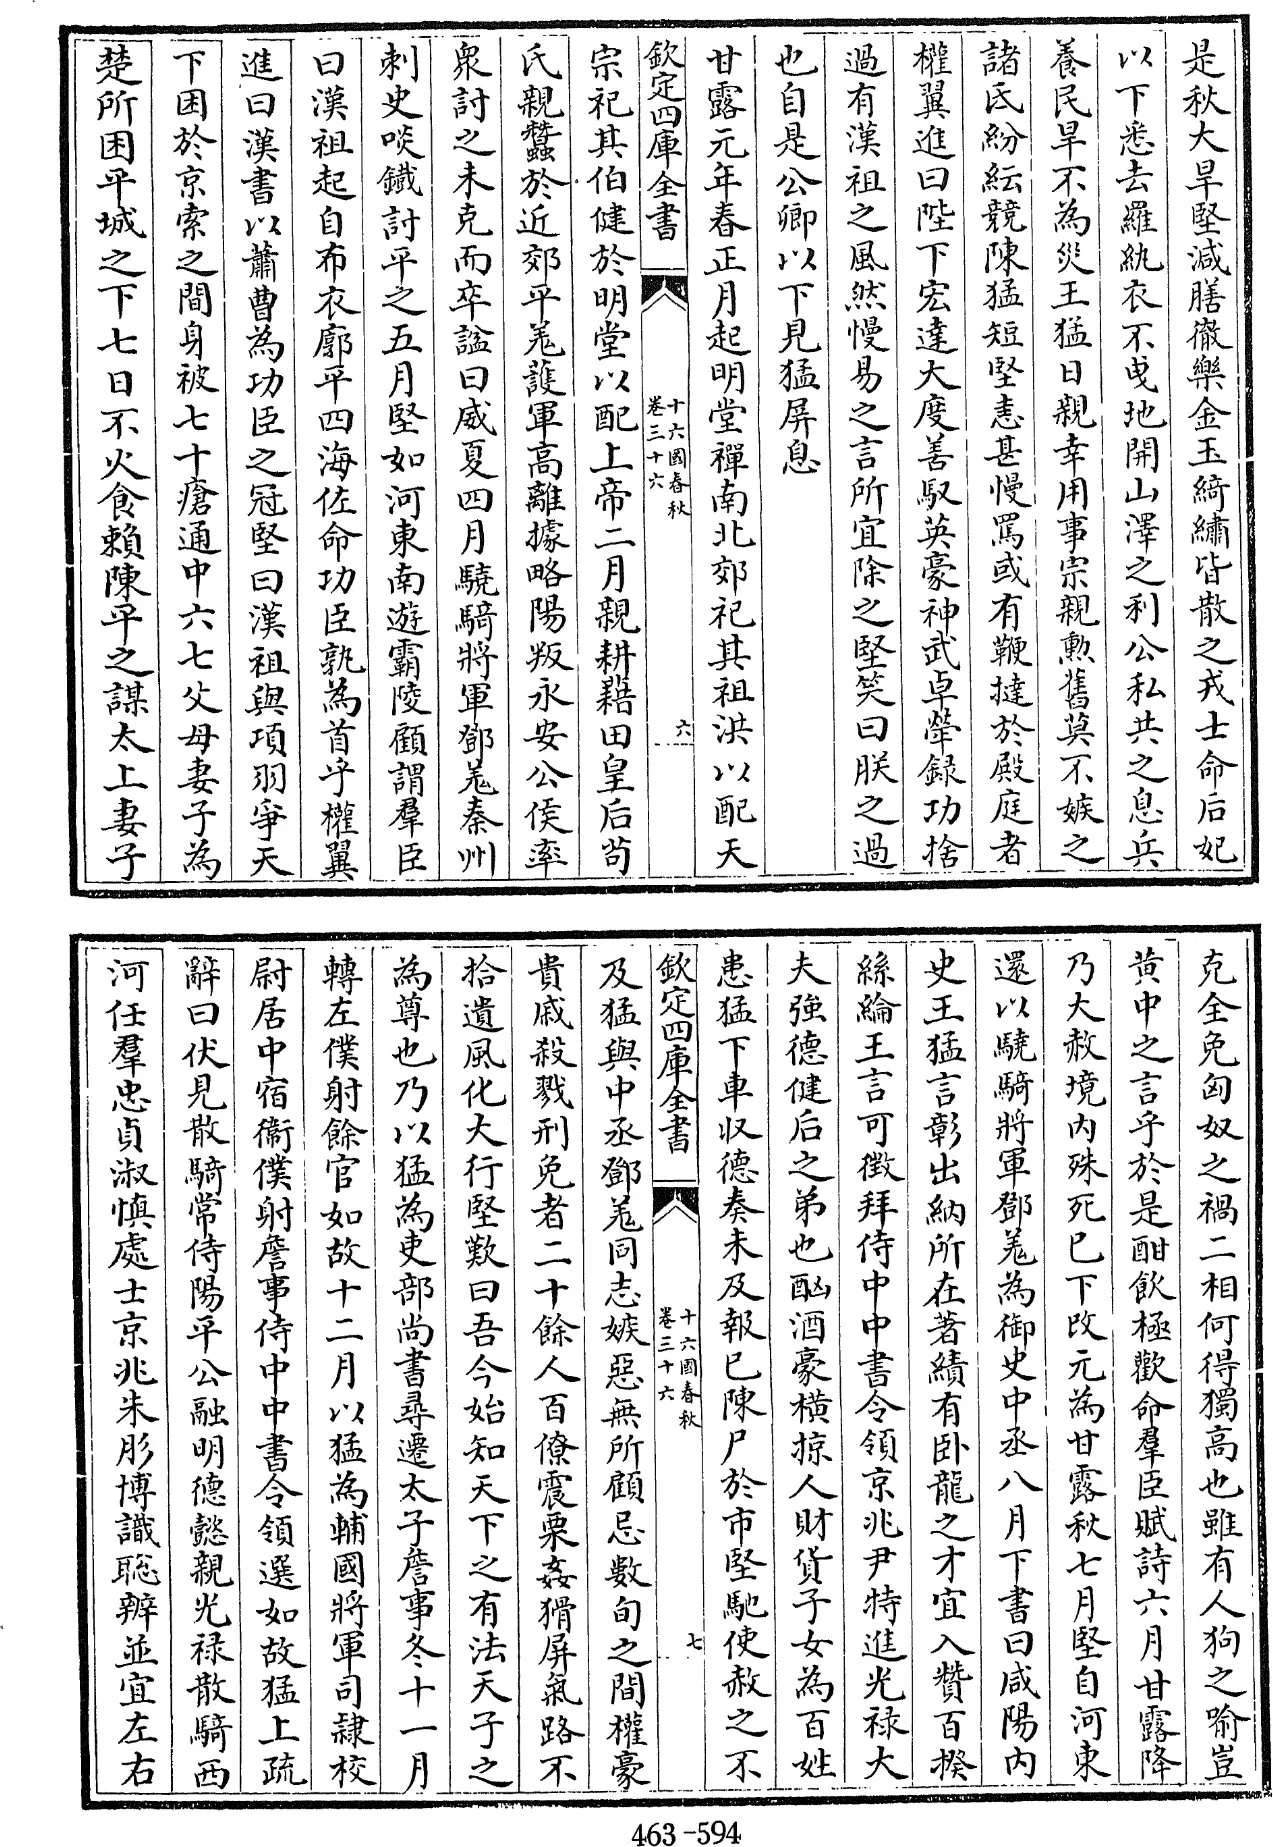 是秋大旱堅減膳徹樂金玉綺繡皆散之戎士命后妃
以下悉去羅紈衣不曳地開山澤之利公私共之息兵
養民旱不為災王猛日親幸用事宗親勲舊莫不嫉之
諸氐紛紜競陳猛短堅恚甚慢罵或有鞭撻於殿庭者
權翼進曰陛下宏達大度善馭英豪神武卓犖録功捨
過有漢祖之風然慢易之言所宜除之堅笑曰朕之過
也自是公卿以下見猛屏息
甘露元年春正月起明堂禪南北郊祀其祖洪以配天
欽定四庫全書
十六國春秋
卷三十六
六
宗祀其伯健於明堂以配上帝二月親耕藉田皇后茍
氏親蠶於近郊平羌護軍高離據略陽叛永安公侯率
衆討之未克而卒諡曰威夏四月驍騎將軍鄧羌秦州
刺史啖鐵討平之五月堅如河東南遊霸陵顧謂羣臣
曰漢祖起自布衣廓平四海佐命功臣孰為首乎權翼
進曰漢書以蕭曹為功臣之冠堅曰漢祖與項羽爭天
下困於京索之間身被七十瘡通中六七父母妻子為
楚所困平城之下七日不火食賴陳平之謀太上妻子
克全免匈奴之禍二相何得獨高也雖有人狗之喻豈
黄中之言乎於是酣飲極歡命羣臣賦詩六月甘露降
乃大赦境内殊死已下改元為甘露秋七月堅自河東
還以驍騎將軍鄧羌為御史中丞八月下書曰咸陽内
史王猛言彰出納所在著績有卧龍之才宜入贊百揆
絲綸王言可徴拜侍中中書令領京兆尹特進光禄大
夫強德健后之弟也酗酒豪横掠人財貨子女為百姓
患猛下車収德奏未及報已陳尸於市堅馳使赦之不
欽定四庫全書
十六國春秋
卷三十六
七
及猛與中丞鄧羌同志嫉惡無所顧忌數旬之間權豪
貴戚殺戮刑免者二十餘人百僚震栗姦猾屏氣路不
拾遺風化大行堅歎曰吾今始知天下之有法天子之
為尊也乃以猛為吏部尚書尋遷太子詹事冬十一月
轉左僕射餘官如故十二月以猛為輔國將軍司隷校
尉居中宿衞僕射詹事侍中中書令領選如故猛上疏
辭曰伏見散騎常侍陽平公融明德懿親光禄散騎西
河任羣忠貞淑慎處士京兆朱肜博識聡辨並宜左右
463-594